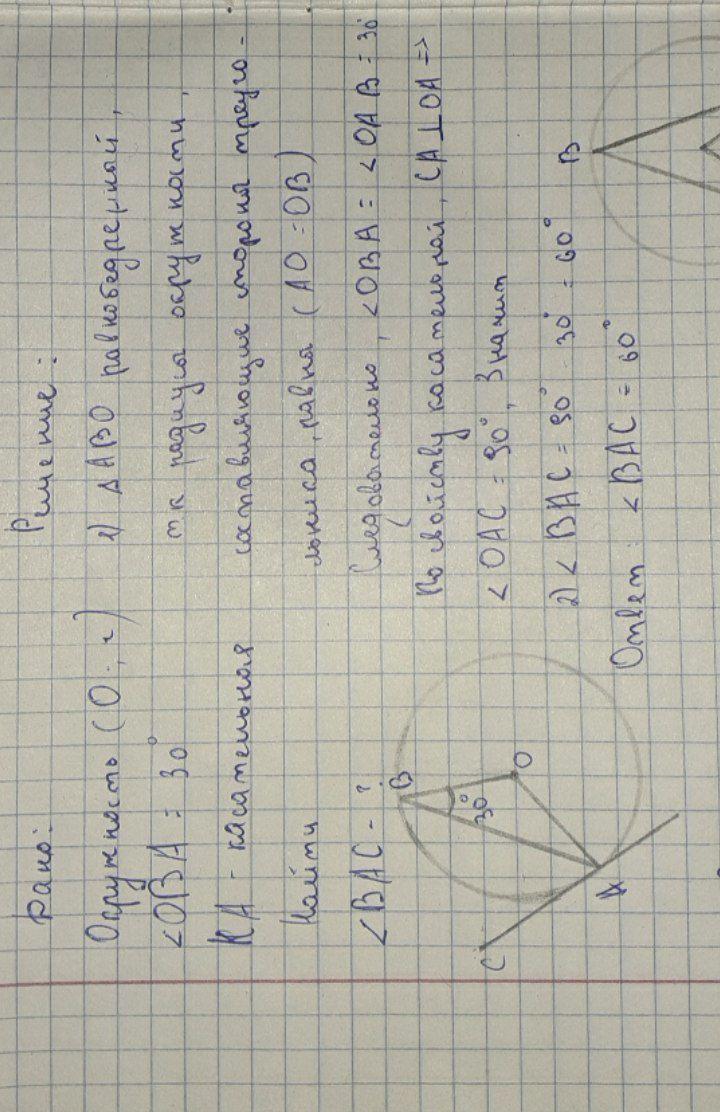 Дано:
Окружность (O; r)
<OBA = 30°
KA - касательная
Найти
<BAC - ?
C
A
B
O
30°
Решение:
1) ΔABO равнобедренный,
т к радиусы окружности,
составляющие стороны треуго-
льника, равны (AO = OB)
Следовательно, <OBA = <OAB = 30°
По свойству касательной, CA⊥OA =>
<OAC = 90°, Значит
2) <BAC = 90° - 30° = 60°
Ответ: <BAC = 60°
B